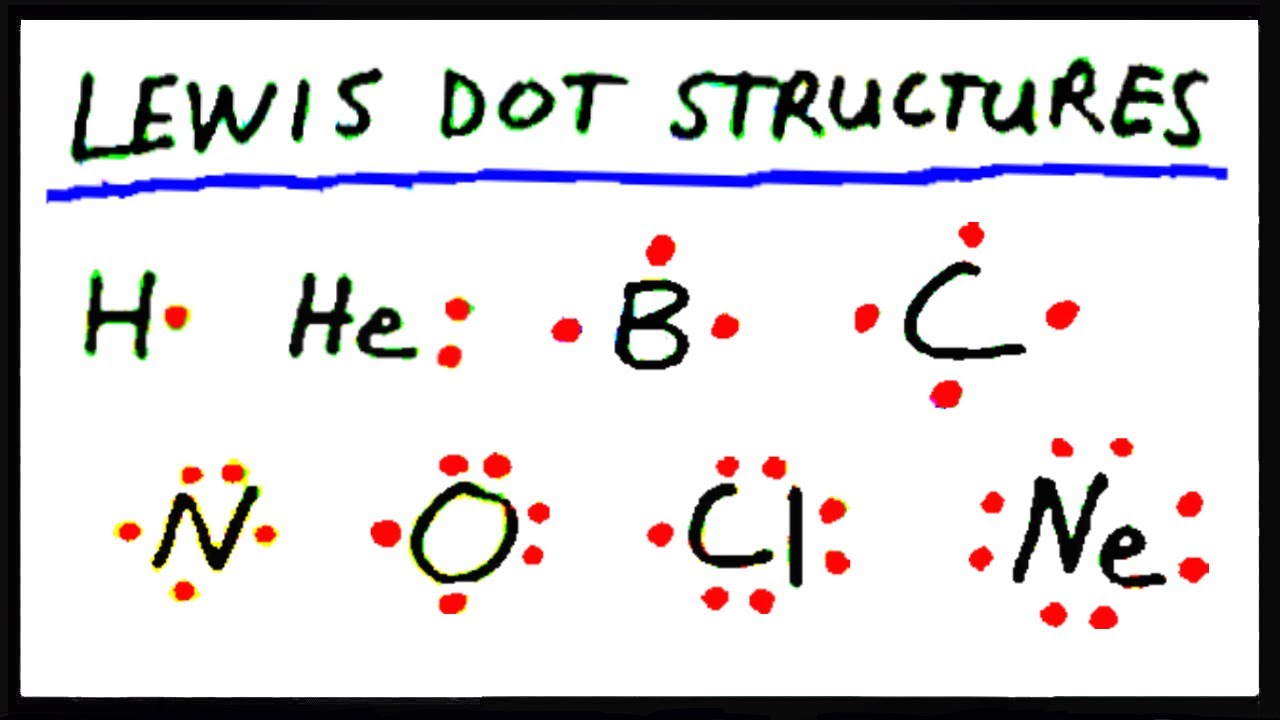 LEWIS DOT STRUCTURES
H He B C
N O Cl Ne